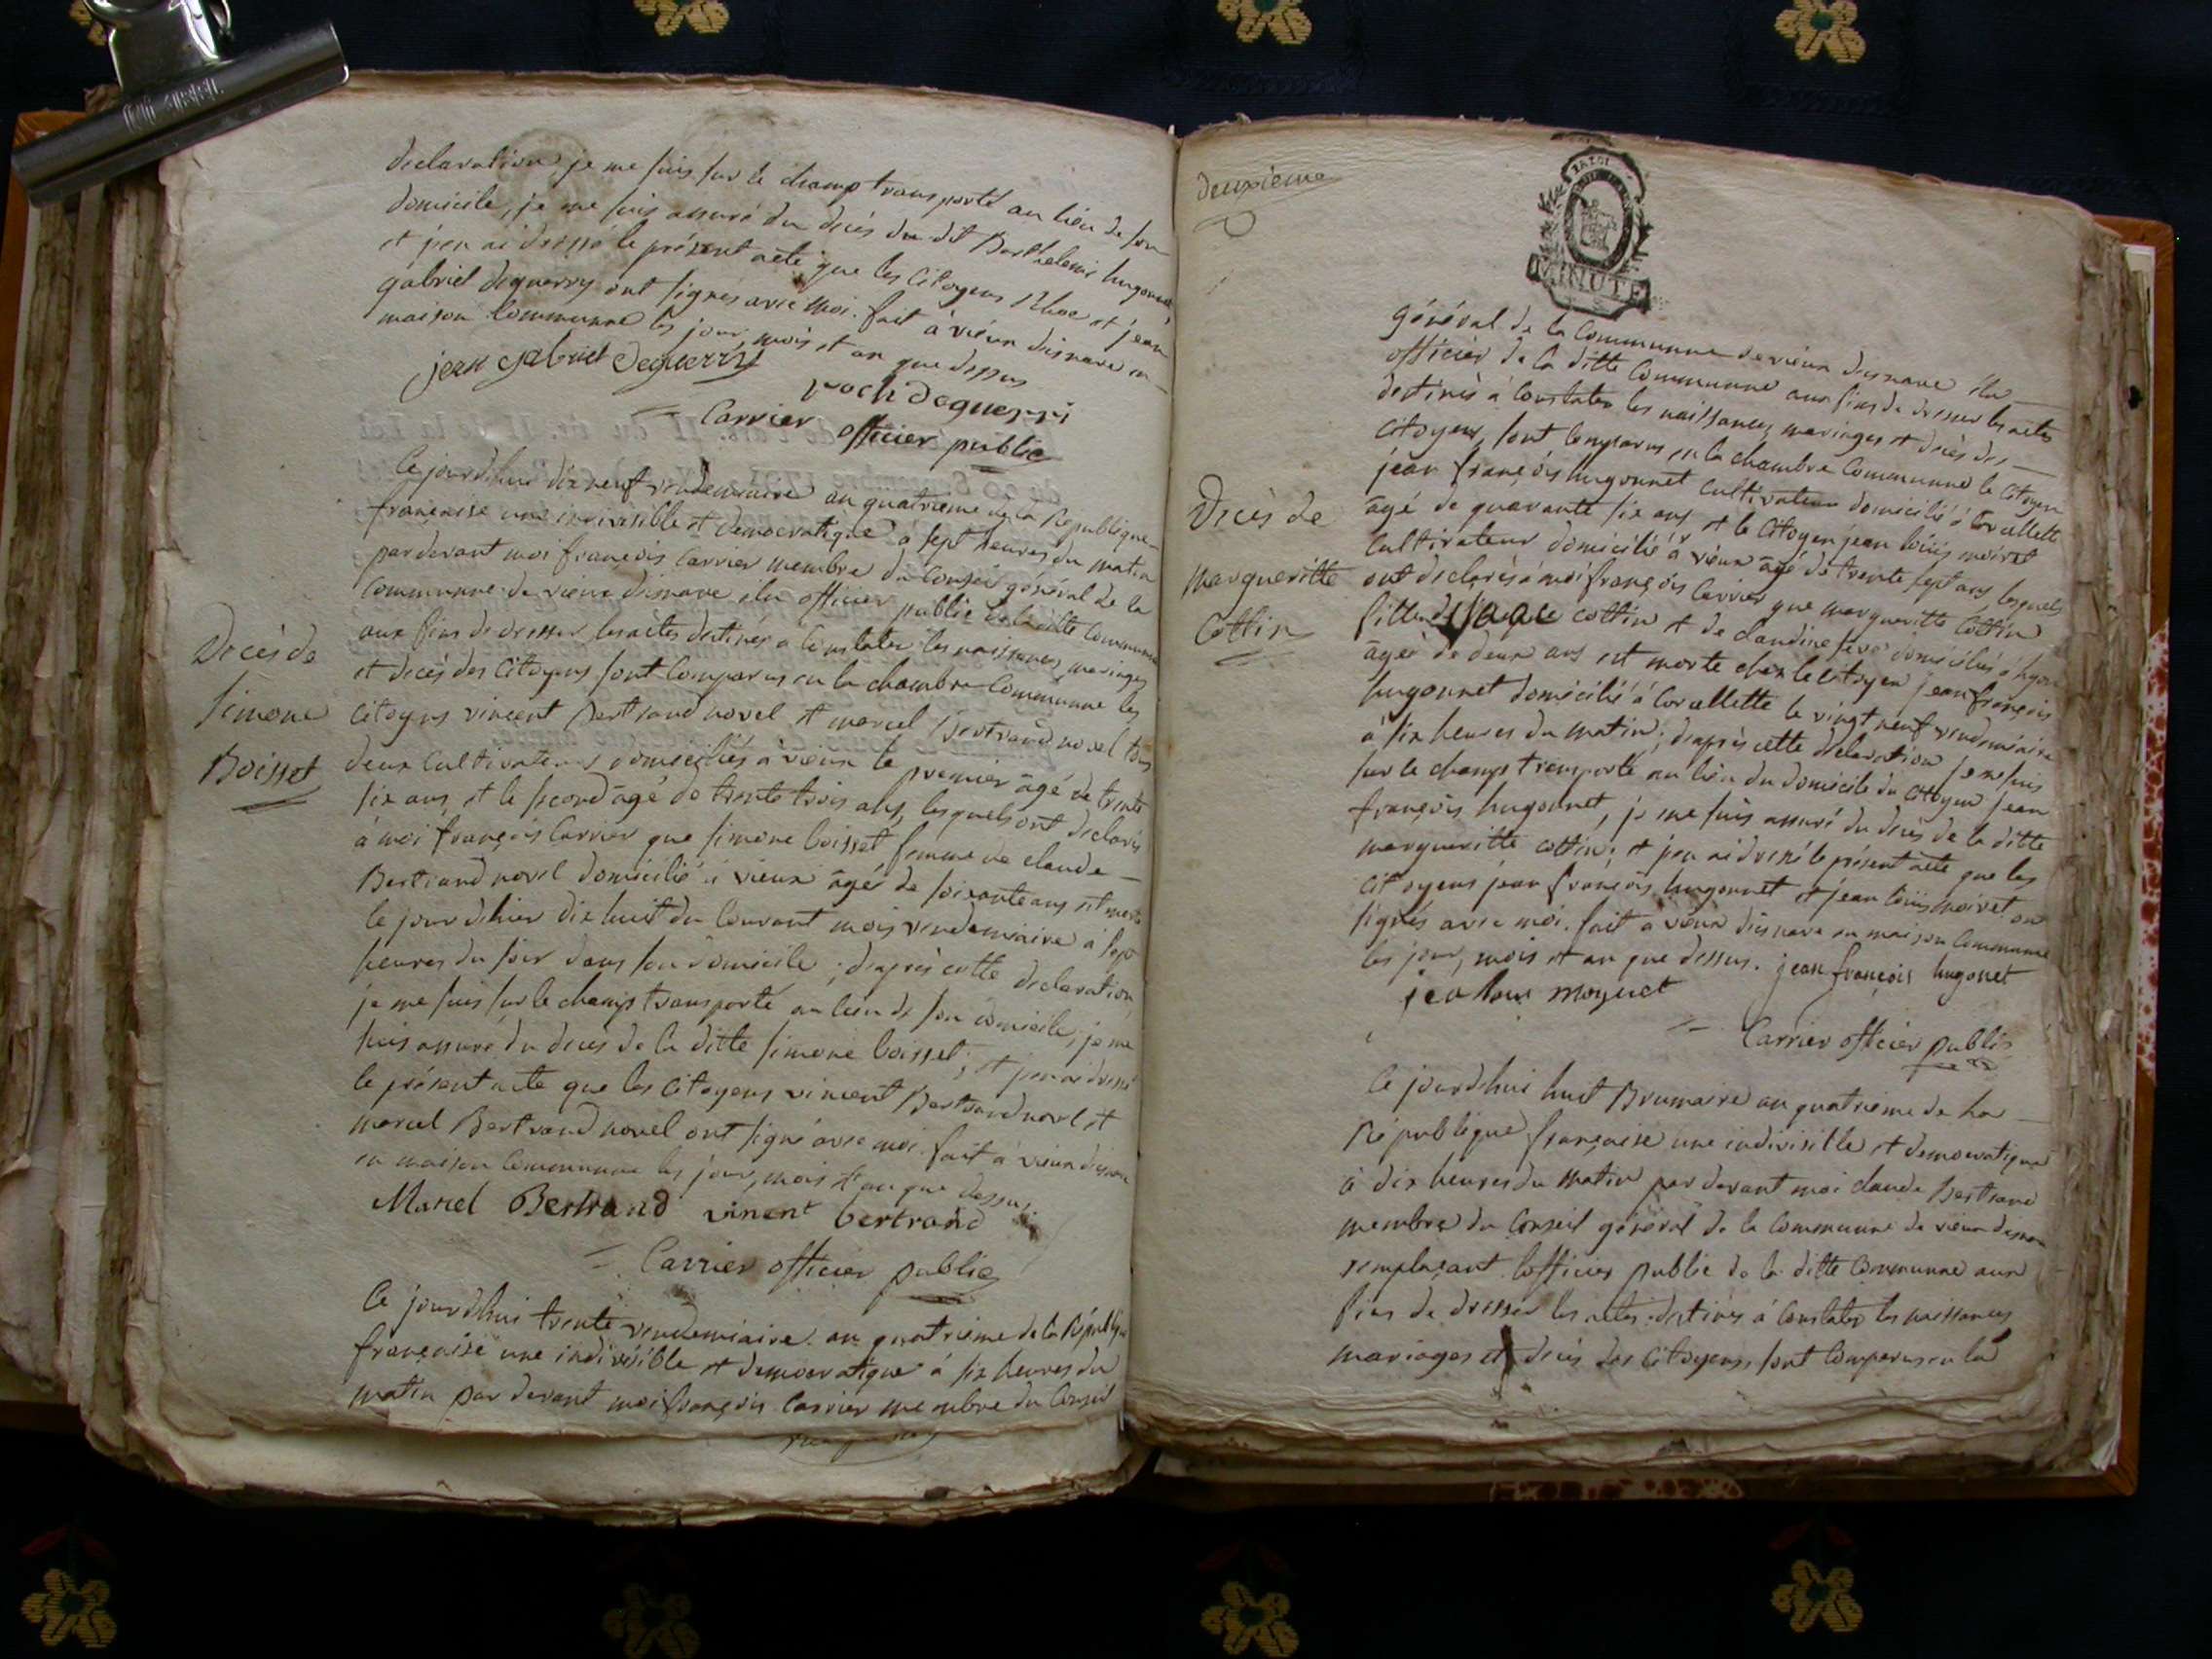 declaration, je me suis sur le champ transporté au lieu de son
domicile, je me suis assuré du décès du dit Barthelemi hugonnet
et j'en ai dressé le présent acte que les Citoyens Roc et jean
gabriel deguerry ont signés avec moi. fait à vieux disnave en
maison Commune les jour, mois et an que dessus
jean gabriel deguerry
roch deguerri
Carrier officier public
Ce jourdhui dix neuf vendemiaire an quatrieme de la Republique
française une indivisible et democratique à sept heures du matin
par devant moi françois Carrier membre du Conseil général de la
Commune de vieux disnave élu officier public de la ditte Commune
aux fins de dresser les actes destinés a Constater les naissances, mariages
et decès des Citoyens sont Comparus en la chambre Commune les
Decès de
Simone
Boisset
Citoyens vincent Bertrand novel et marcel Bertrand novel tous
deux Cultivateurs domiciliés à vieux le premier âgé de trente
six ans, et le second âgé de trente trois ans, lesquels ont declarés
à moi françois Carrier que simone boisset femme de claude
Bertrand novel domicilié à vieux âgée de soixante ans est morte
le jour d'hier dix huit du Courant mois vendemiaire à sept
heures du soir dans son domicile ; d'après cette declaration
je me suis sur le champ transporté au lieu de son domicile, je me
suis assuré du decès de la ditte simone boisset, et j'en ai dressé
le présent acte que les Citoyens vincent Bertrand novel et
marcel Bertrand novel ont signé avec moi. fait à vieux disnave
en maison Commune les jour, mois et an que dessus.
Marcel Bertrand vincent bertrand
Carrier officier public
Ce jourdhui trente vendemiaire an quatrieme de la Républiq
française une indivisible et democratique à six heures du
matin par devant moi françois Carrier membre du Conseil
deuxième
LA LOI
MINUTE
général de la Commune de vieux disnave élu
officier de la ditte Commune aux fins de dresser les actes
destinés à Constater les naissances, mariages et decès des
Citoyens, sont Comparus en la chambre Commune le Citoyen
jean françois hugonnet Cultivateur domicilié à Corcellette
âgé de quarante six ans et le Citoyen jean loüis moiret
Cultivateur domicilié à vieux âgé de trente sept ans lesquels
Decès de
margueritte
Cottin
ont declarés à moi françois Carrier que margueritte Cottin
fille d'isaac cottin et de claudine domiciliés à
âgée de deux ans est morte chez le Citoyen jean françois
hugonnet domicilié à Corcellette le vingt neuf vendemiaire
à six heures du matin ; d'après cette declaration je me suis
sur le champ transporté au lieu du domicile du Citoyen jean
françois hugonnet, je me suis assuré du decès de la ditte
margueritte cottin ; et j'en ai dressé le présent acte que les
Citoyens jean françois hugonnet et jean loüis moiret ont
signés avec moi. fait à vieux disnave en maison Commune
les jour, mois et an que dessus. jean françois hugonet
Carrier officier public
Ce jourdhui huit Brumaire an quatrieme de la
République française une indivisible et democratique
à dix heures du matin par devant moi claude Bertrand
membre du Conseil général de la Commune de vieux disnave
remplaçant l'officier public de la ditte Commune aux
fins de dresser les actes destinés à Constater les naissances
mariages et decès des Citoyens, sont Comparus en la